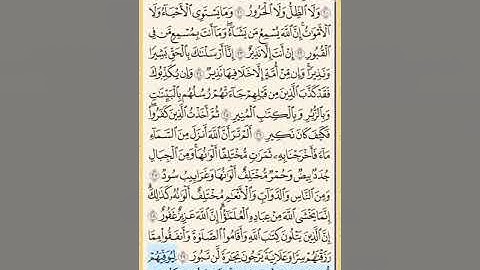 ۝ وَلَا ٱلظِّلُّ وَلَا ٱلْحَرُورُ ۝ وَمَا يَسْتَوِى ٱلْأَحْيَآءُ وَلَا
ٱلْأَمْوَٰتُ إِنَّ ٱللَّهَ يُسْمِعُ مَن يَشَآءُ وَمَآ أَنتَ بِمُسْمِعٍ مَّن فِى
ٱلْقُبُورِ ۝ إِنْ أَنتَ إِلَّا نَذِيرٌ ۝ إِنَّآ أَرْسَلْنَٰكَ بِٱلْحَقِّ بَشِيرًا
وَنَذِيرًا وَإِن مِّنْ أُمَّةٍ إِلَّا خَلَا فِيهَا نَذِيرٌ ۝ وَإِن يُكَذِّبُوكَ
فَقَدْ كَذَّبَ ٱلَّذِينَ مِن قَبْلِهِمْ جَآءَتْهُمْ رُسُلُهُم بِٱلْبَيِّنَٰتِ
وَبِٱلزُّبُرِ وَبِٱلْكِتَٰبِ ٱلْمُنِيرِ ۝ ثُمَّ أَخَذْتُ ٱلَّذِينَ كَفَرُوا۟
فَكَيْفَ كَانَ نَكِيرِ ۝ أَلَمْ تَرَ أَنَّ ٱللَّهَ أَنزَلَ مِنَ ٱلسَّمَآءِ
مَآءً فَأَخْرَجْنَا بِهِۦ ثَمَرَٰتٍ مُّخْتَلِفًا أَلْوَٰنُهَا وَمِنَ ٱلْجِبَالِ
جُدَدٌۢ بِيضٌ وَحُمْرٌ مُّخْتَلِفٌ أَلْوَٰنُهَا وَغَرَابِيبُ سُودٌ ۝
وَمِنَ ٱلنَّاسِ وَٱلدَّوَآبِّ وَٱلْأَنْعَٰمِ مُخْتَلِفٌ أَلْوَٰنُهُۥ كَذَٰلِكَ
إِنَّمَا يَخْشَى ٱللَّهَ مِنْ عِبَادِهِ ٱلْعُلَمَٰٓؤُا۟ إِنَّ ٱللَّهَ عَزِيزٌ غَفُورٌ ۝
إِنَّ ٱلَّذِينَ يَتْلُونَ كِتَٰبَ ٱللَّهِ وَأَقَامُوا۟ ٱلصَّلَوٰةَ وَأَنفَقُوا۟ مِمَّا
رَزَقْنَٰهُمْ سِرًّا وَعَلَانِيَةً يَرْجُونَ تِجَٰرَةً لَّن تَبُورَ ۝ لِيُوَفِّيَهُمْ